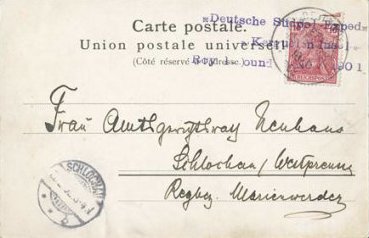 Carte postale.
Union postale universelle
(Côté réservé à l'adresse.)
»Deutsche Südpol-Exped
»Kerguelen
1901
Frau Amtsgerichtsrath Neuhaus
Schlochau / Westpreussen
Regbez. Marienwerder
SCHLOCHAU